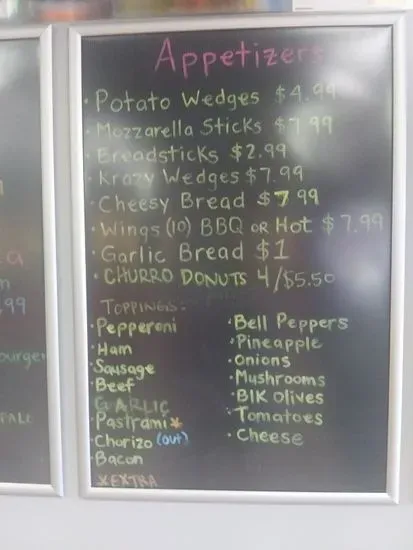 Appetizers
• Potato Wedges $4.99
• Mozzarella Sticks $7.99
• Breadsticks $2.99
• Krazy Wedges $7.99
• Cheesy Bread $7.99
• Wings (10) BBQ OR Hot $7.99
• Garlic Bread $1
• CHURRO DONUTS 4/$5.50
TOPPINGS:
• Pepperoni
• Ham
• Sausage
• Beef
GARLIC
• Pastrami*
• Chorizo (out)
• Bacon
*EXTRA
• Bell Peppers
• Pineapple
• Onions
• Mushrooms
• Blk Olives
• Tomatoes
• Cheese
.99
burger
FALL